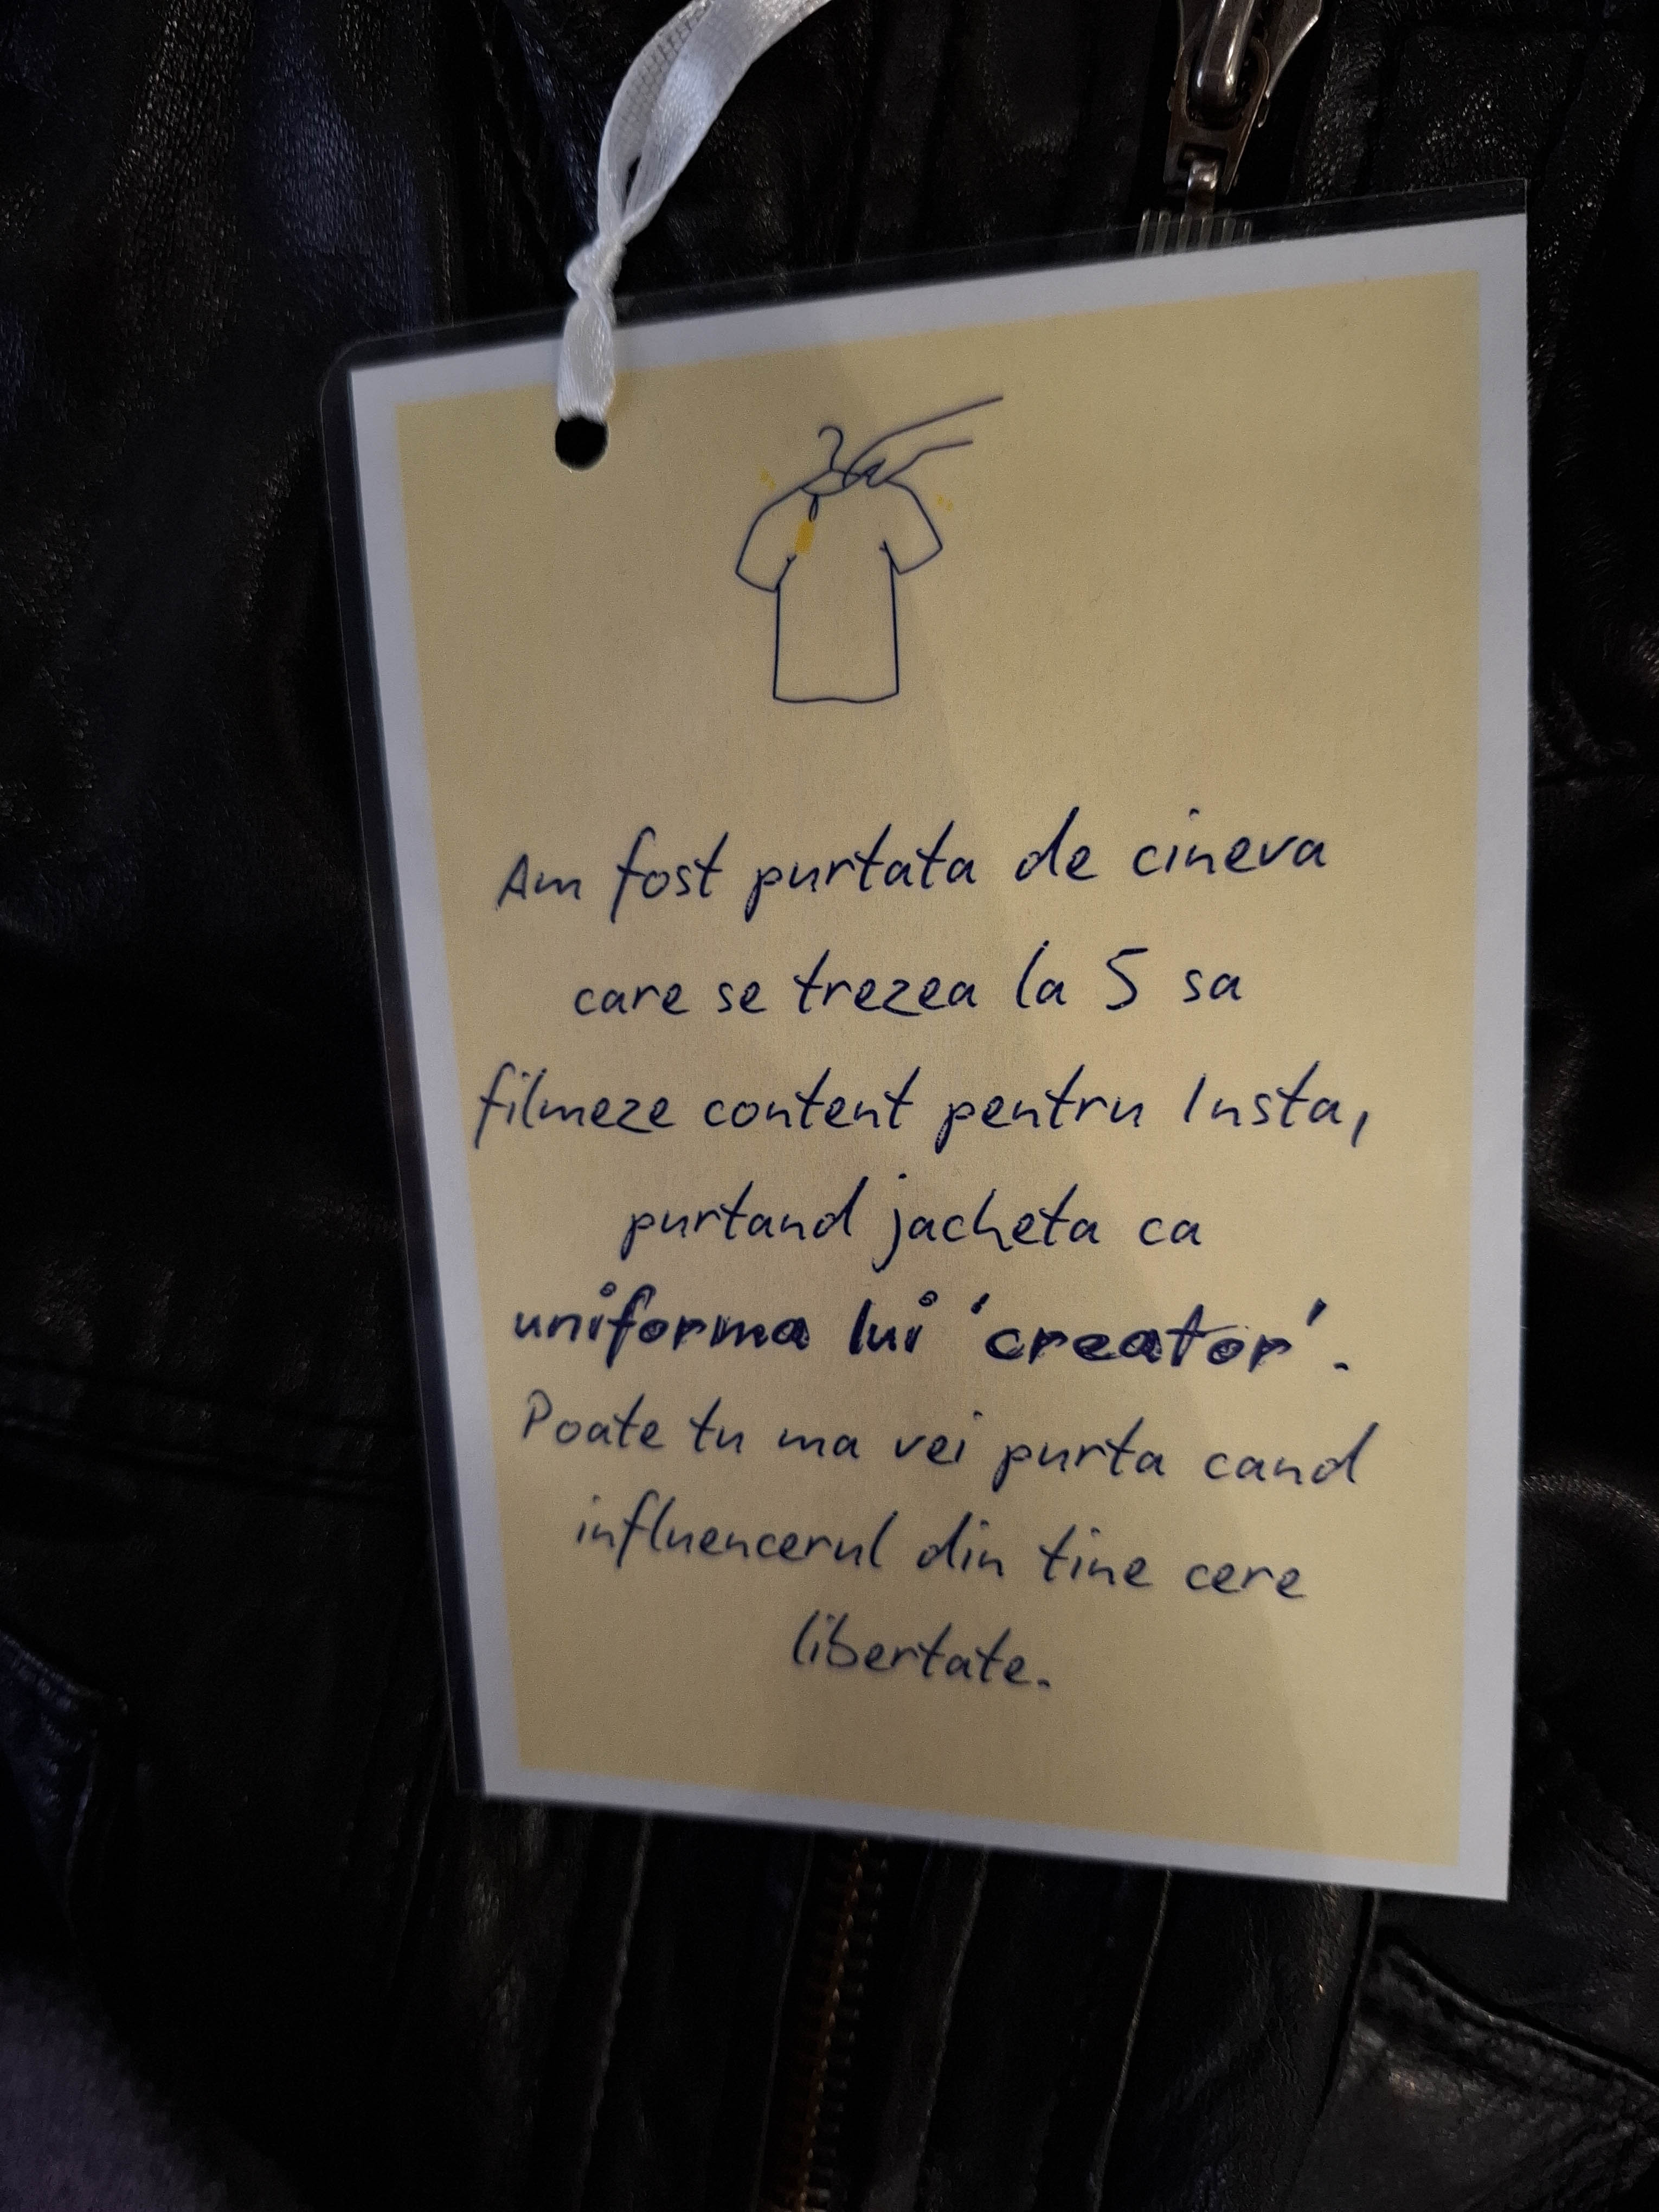 Am fost purtata de cineva
care se trezea la 5 sa
filmeze content pentru Insta,
purtand jacheta ca
uniforma lui 'creator'.
Poate tu ma vei purta cand
influencerul din tine cere
libertate.